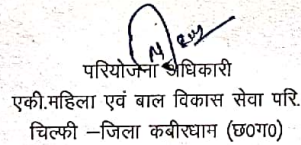 परियोजना अधिकारी
एकी.महिला एवं बाल विकास सेवा परि.
चिल्फी –जिला कबीरधाम (छ0ग0)